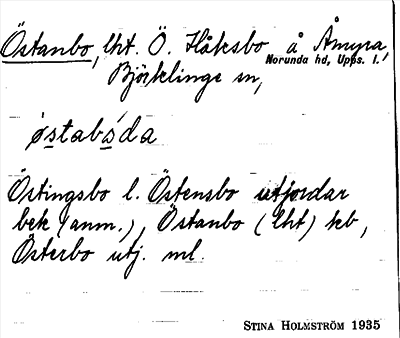 Östanbo, lht. Ö. Håksbo å Åmyra,
Norunda hd, Upps. l.
Björklinge sn,
östaböda
Östingsbo l. Östensbo utjordar
bek (anm.), Östanbo (lht) kb,
Österbo utj. ml.
STINA HOLMSTRÖM 1935